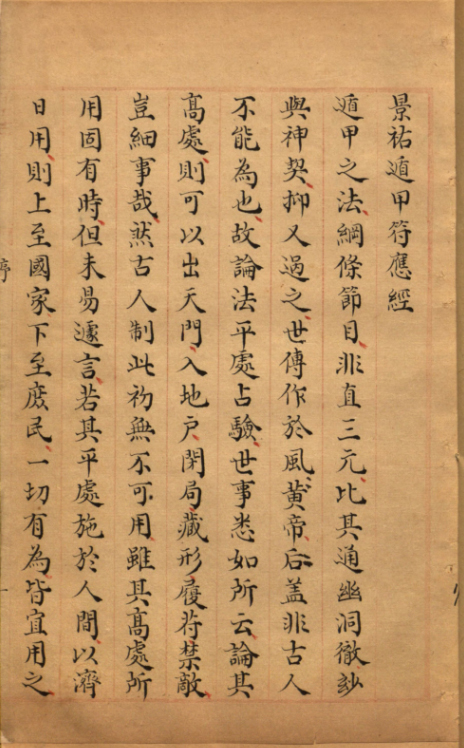 景祐遁甲符應經
遁甲之法綱條節目非直三元比其通幽洞徹玅
與神契抑又過之世傳作於風黃帝后盖非古人
不能為也故論法平處占驗世事悉如所云論其
髙處則可以出天門入地戶閉局藏形履符禁敵
豈細事哉然古人制此初無不可用雖其髙處所
用固有時但未易遽言若其平處施於人間以濟
日用則上至國家下至庶民一切有為皆宜用之
序